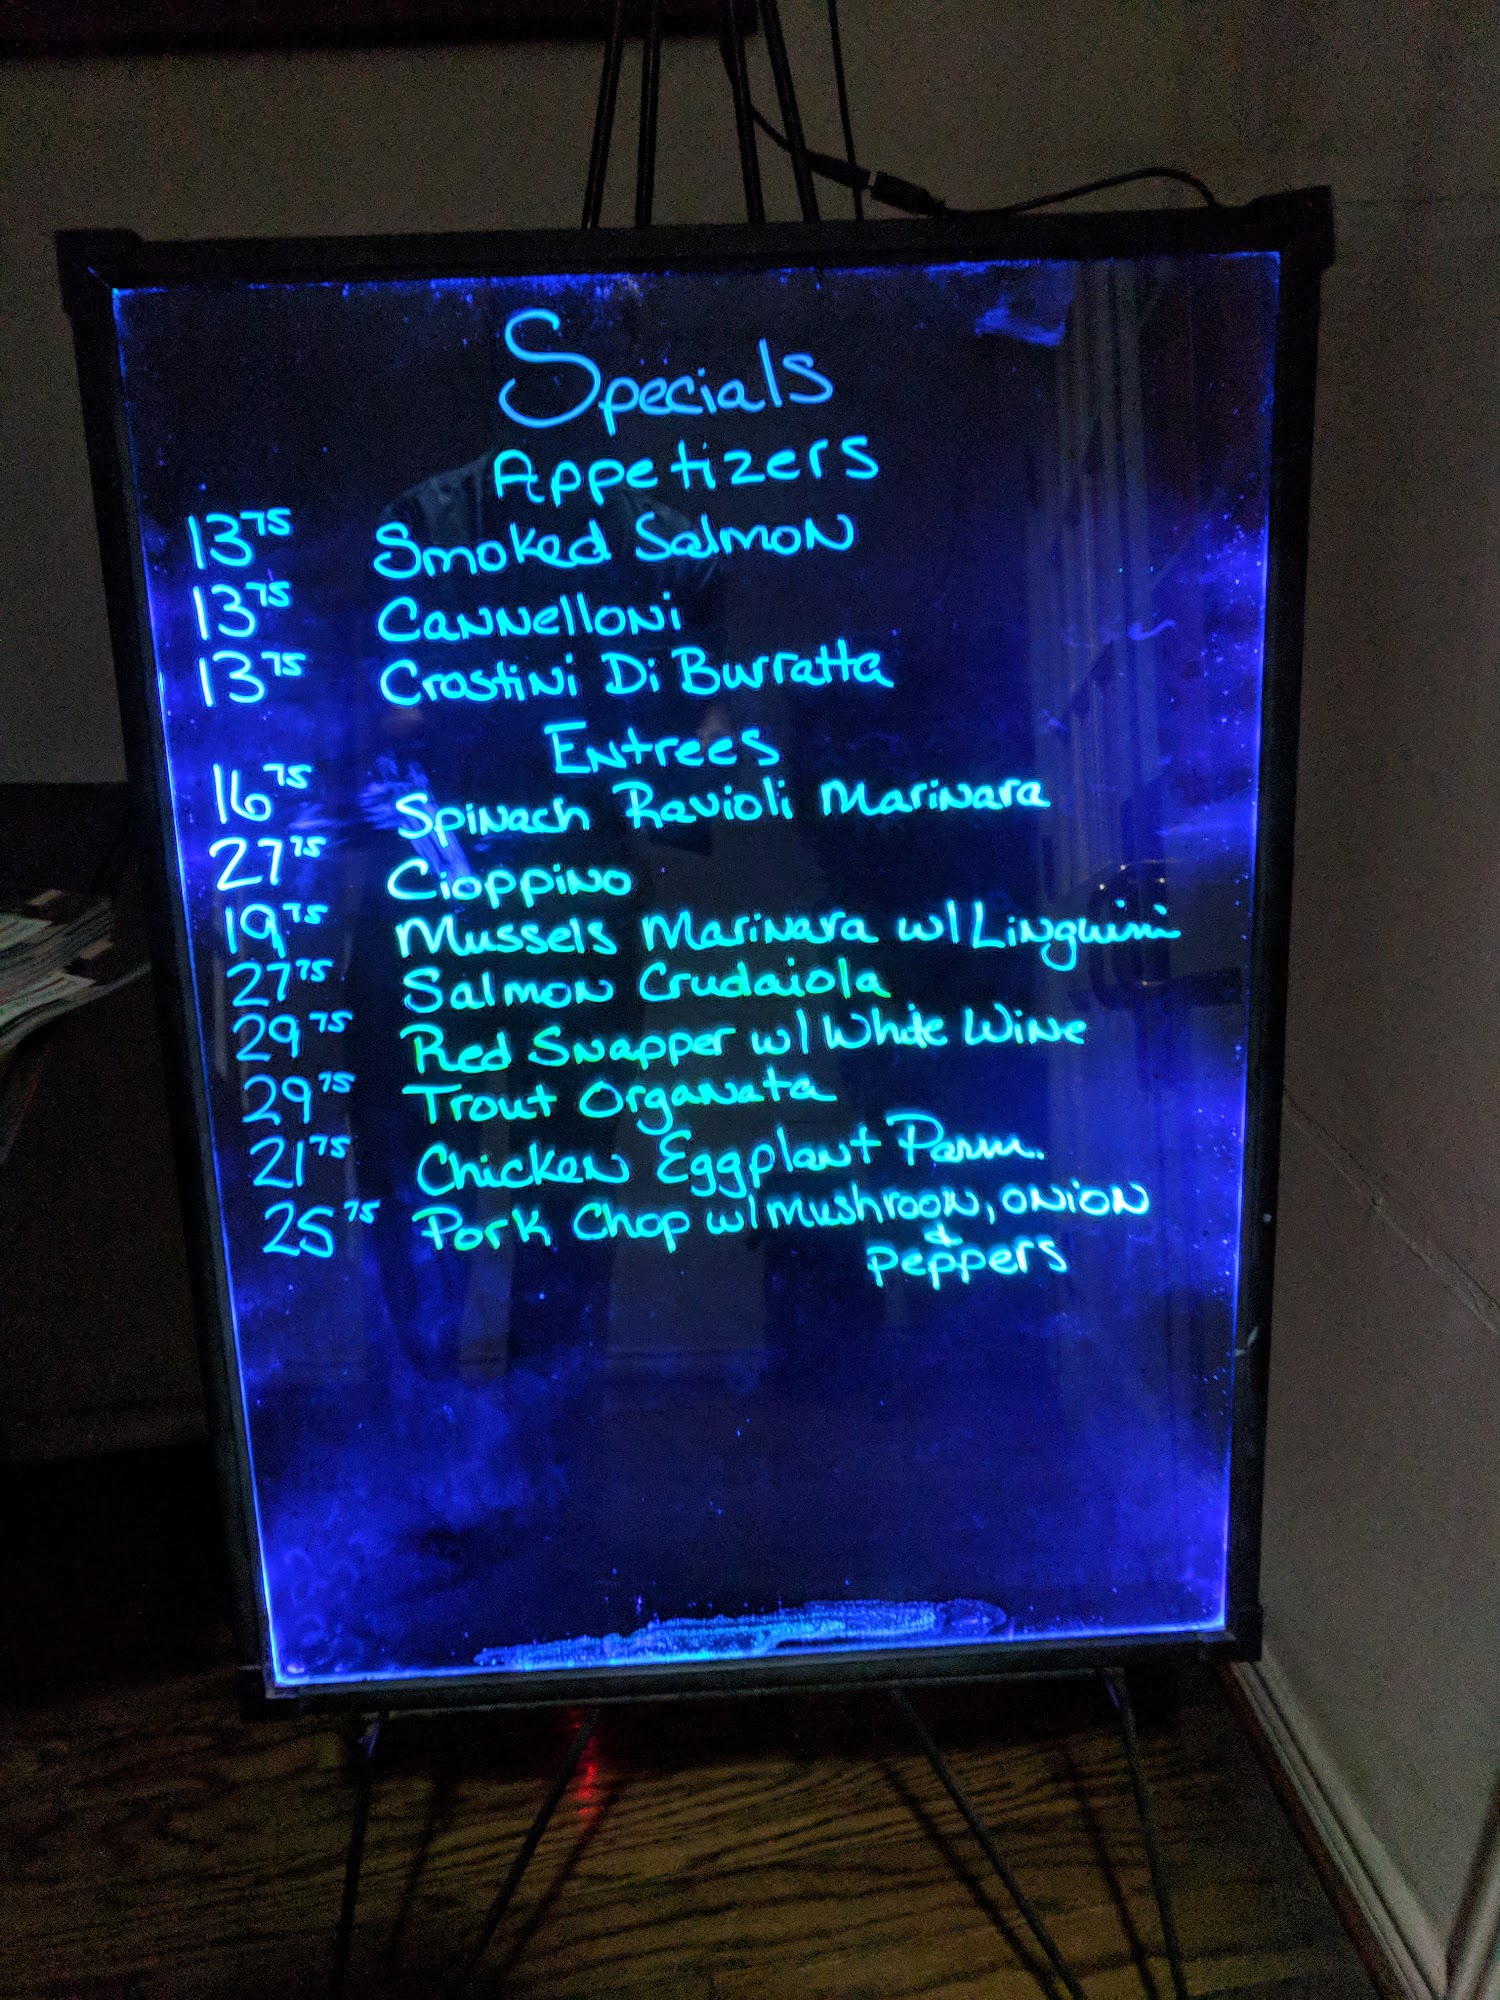 Specials
Appetizers
13 75 Smoked Salmon
13 75 Cannelloni
13 75 Crostini Di Burratta
Entrees
16 75 Spinach Ravioli Marinara
27 75 Cioppino
19 75 Mussels Marinara w/ Linguini
27 75 Salmon Crudaiola
29 75 Red Snapper w/ White Wine
29 75 Trout Organata
21 75 Chicken Eggplant Parm.
25 75 Pork Chop w/ mushroom, onion
&
peppers